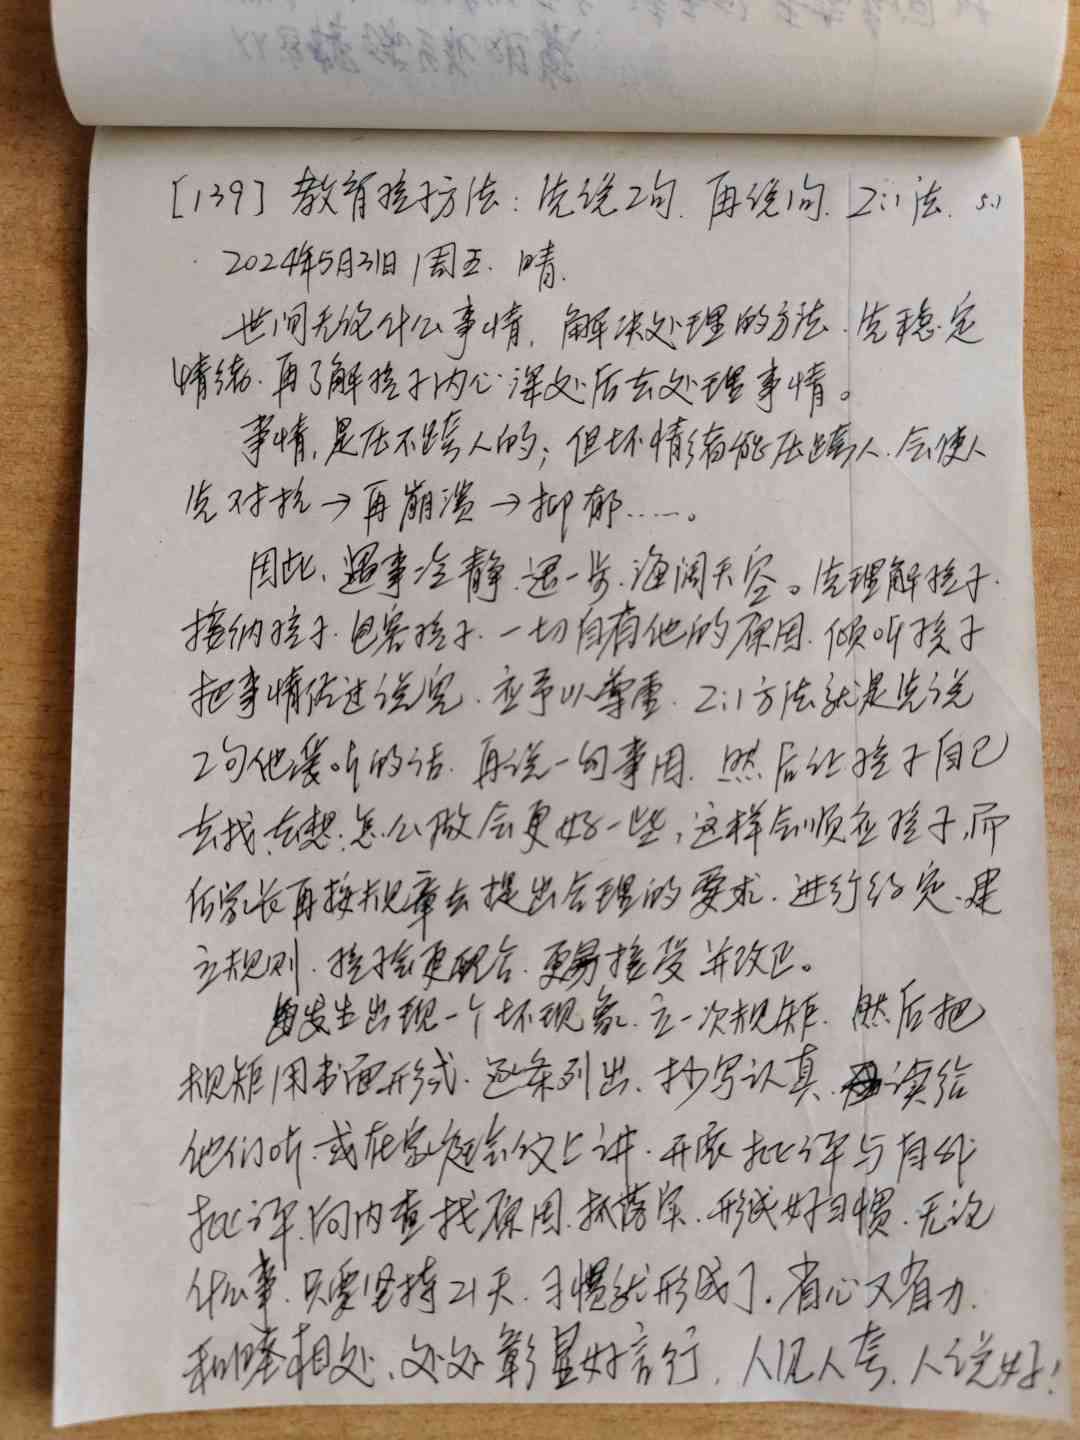 [139] 教育孩子方法：先说2句. 再说1句. 2:1法. 5.1
2024年5月31日 周五. 晴.
世间无论什么事情, 解决处理的方法. 先稳定
情绪. 再了解孩子内心深处后去处理事情。
事情, 是压不跨人的; 但坏情绪能压跨人. 会使人
先对抗→再崩溃→抑郁……。
因此, 遇事冷静. 退一步. 海阔天空。先理解孩子.
接纳孩子. 包容孩子. 一切自有他的原因. 倾听孩子
把事情经过说完. 应予以尊重. 2:1方法就是先说
2句他爱听的话. 再说一句事因. 然后让孩子自己
去找, 去想, 怎么做会更好一些, 这样会顺应孩子, 而
后家长再按规章去提出合理的要求. 进行约定. 建
立规则. 孩子会更配合. 更易接受并改正。
发生出现一个坏现象. 立一次规矩. 然后把
规矩用书面形式. 逐条列出. 抄写认真. 读给
他们听. 或在家庭会议上讲. 开展批评与自我
批评. 向内查找原因. 抓落实. 形成好习惯. 无论
什么事. 只要坚持21天. 习惯就形成了. 省心又省力.
和睦相处. 处处彰显好言行. 人见人夸. 人说好!